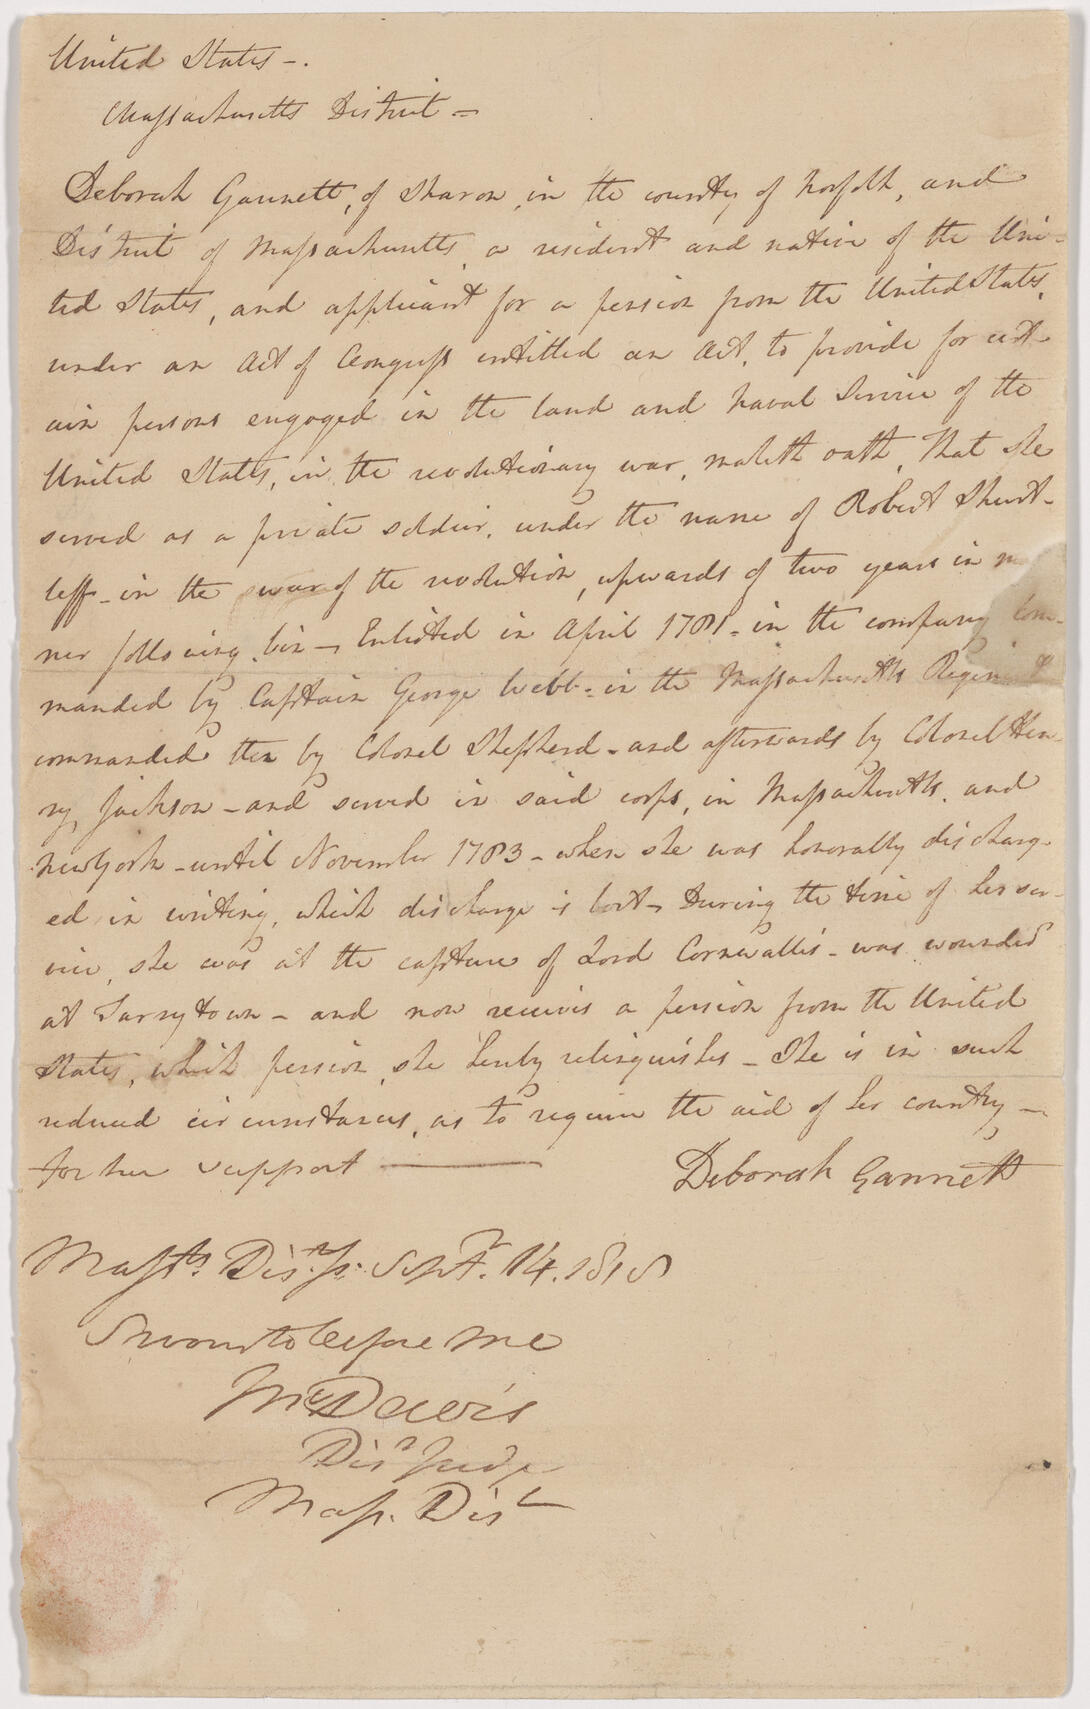 United States -.
Massachusetts District -
Deborah Gannett, of Sharon, in the county of Norfolk, and
District of Massachusetts, a resident and native of the Uni-
ted States, and applicant for a pension from the United States,
under an Act of Congress entitled an Act, to provide for cert-
ain persons engaged in the land and naval Service of the
United States, in the revolutionary war, maketh oath, That she
served as a private soldier, under the name of Robert Shurt-
leff - in the war of the revolution, upwards of two years in m
ner following. viz - Enlisted in April 1781 - in the company com-
manded by Captain George Webb - in the Massachusetts Regiment
commanded then by Colonel Shepherd - and afterwards by Colonel Hen-
ry Jackson - and served in said corps, in Massachusetts, and
New York - until November 1783 - when she was honorably discharg-
ed in writing, which discharge is lost - During the time of her ser-
vice, she was at the capture of Lord Cornwallis - was wounded
at Tarrytown - and now receives a pension from the United
States, which pension she hereby relinquishes - She is in such
reduced circumstances, as to require the aid of her country -
for her support ———
Deborah Gannett
Massts. Dist. Sept. 14. 1818
Sworn to before me
Davis
Dist Judge
Mass. Dist